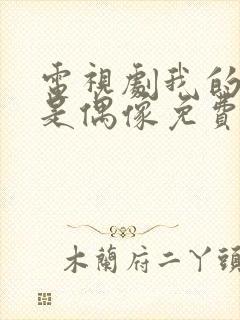 電視劇我的
是偶像免費
木蘭府二丫頭